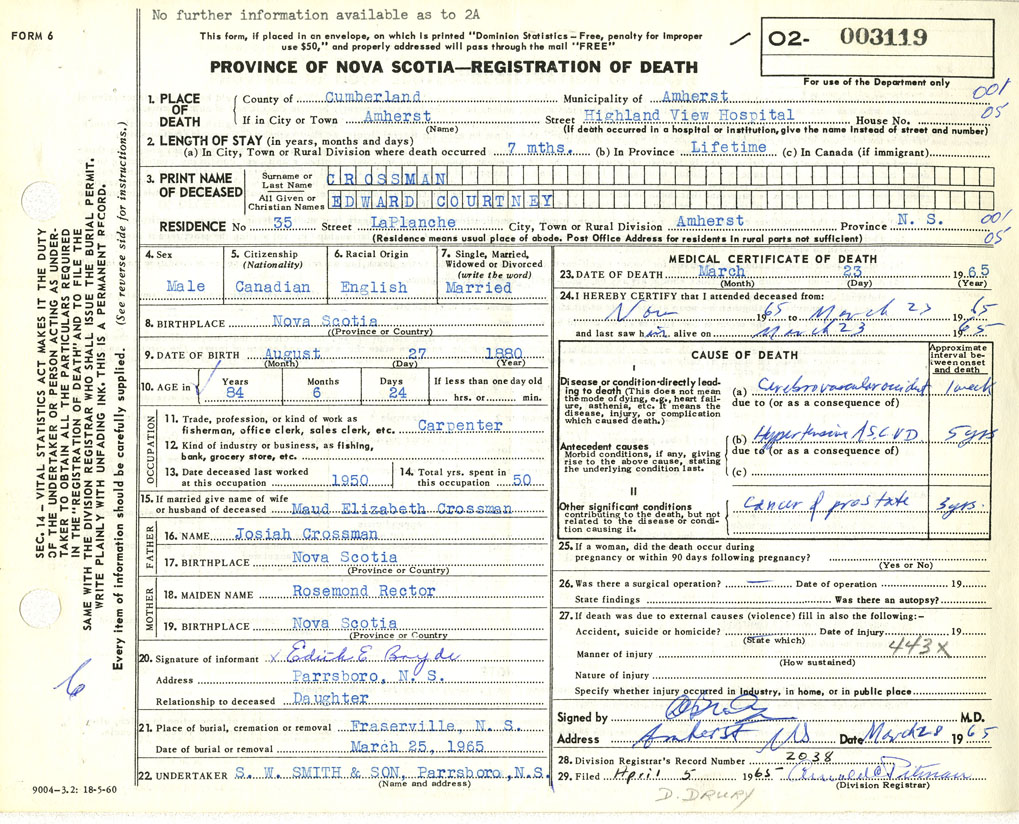 No further information available as to 2A
FORM 6
This form, if placed in an envelope, on which is printed "Dominion Statistics – Free, penalty for improper
use $50," and properly addressed will pass through the mail "FREE"
PROVINCE OF NOVA SCOTIA—REGISTRATION OF DEATH
02- 003119
For use of the Department only
001
05
1. PLACE OF DEATH
County of Cumberland Municipality of Amherst
If in City or Town Amherst Street Highland View Hospital House No.
(Name) (If death occurred in a hospital or institution, give the name instead of street and number)
2. LENGTH OF STAY (in years, months and days)
(a) In City, Town or Rural Division where death occurred 7 mths. (b) In Province Lifetime (c) In Canada (if immigrant)
3. PRINT NAME OF DECEASED
Surname or Last Name CROSSMAN
All Given or Christian Names EDWARD COURTNEY
RESIDENCE No 35 Street LaPlanche City, Town or Rural Division Amherst Province N. S.
(Residence means usual place of abode. Post Office Address for residents in rural parts not sufficient)
001
05
4. Sex
Male
5. Citizenship
(Nationality)
Canadian
6. Racial Origin
English
7. Single, Married,
Widowed or Divorced
(write the word)
Married
8. BIRTHPLACE Nova Scotia
(Province or Country)
9. DATE OF BIRTH August 27 1880
(Month) (Day) (Year)
10. AGE in Years Months Days If less than one day old
84 6 24 hrs. or min.
OCCUPATION
11. Trade, profession, or kind of work as
fisherman, office clerk, sales clerk, etc. Carpenter
12. Kind of industry or business, as fishing,
bank, grocery store, etc.
13. Date deceased last worked
at this occupation 1950
14. Total yrs. spent in
this occupation 50
15. If married give name of wife
or husband of deceased Maud Elizabeth Crossman
FATHER
16. NAME Josiah Crossman
17. BIRTHPLACE Nova Scotia
(Province or Country)
MOTHER
18. MAIDEN NAME Rosemond Rector
19. BIRTHPLACE Nova Scotia
(Province or Country
20. Signature of informant x Edith E
Address Parrsboro, N. S.
Relationship to deceased Daughter
21. Place of burial, cremation or removal Fraserville, N. S.
Date of burial or removal March 25, 1965
22. UNDERTAKER S. W. SMITH & SON, Parrsboro, N.S.
(Name and address)
MEDICAL CERTIFICATE OF DEATH
23. DATE OF DEATH March 23 1965
(Month) (Day) (Year)
24. I HEREBY CERTIFY that I attended deceased from:
Nov 1965 to March 23 1965
and last saw him alive on March 23 1965
CAUSE OF DEATH
Approximate
interval be-
tween onset
and death
I
Disease or condition directly lead-
ing to death (This does not mean
the mode of dying, e.g., heart fail-
ure, asthenia, etc. It means the
disease, injury, or complication
which caused death.)
(a) Cerebrovascular accident 1 week
due to (or as a consequence of)
Antecedent causes
Morbid conditions, if any, giving
rise to the above cause, stating
the underlying condition last.
(b) Hypertensive A.S.C.V.D 5 yrs
due to (or as a consequence of)
(c)
II
Other significant conditions
contributing to the death, but not
related to the disease or condi-
tion causing it.
Cancer of prostate 3 yrs.
25. If a woman, did the death occur during
pregnancy or within 90 days following pregnancy?
(Yes or No)
26. Was there a surgical operation? — Date of operation 19
State findings Was there an autopsy?
27. If death was due to external causes (violence) fill in also the following:–
Accident, suicide or homicide? Date of injury 19
(State which)
443X
Manner of injury
(How sustained)
Nature of injury
Specify whether injury occurred in industry, in home, or in public place
Signed by M.D.
Address Amherst NS Date March 28 1965
28. Division Registrar's Record Number 2038
29. Filed April 5 1965 Pitman
(Division Registrar)
D. DRURY
9004–3.2: 18-5-60
6
SEC. 14 – VITAL STATISTICS ACT MAKES IT THE DUTY
OF THE UNDERTAKER OR PERSON ACTING AS UNDER-
TAKER TO OBTAIN ALL THE PARTICULARS REQUIRED
IN THE "REGISTRATION OF DEATH" AND TO FILE THE
SAME WITH THE DIVISION REGISTRAR WHO SHALL ISSUE THE BURIAL PERMIT.
WRITE PLAINLY WITH UNFADING INK. THIS IS A PERMANENT RECORD.
Every item of information should be carefully supplied. (See reverse side for instructions.)